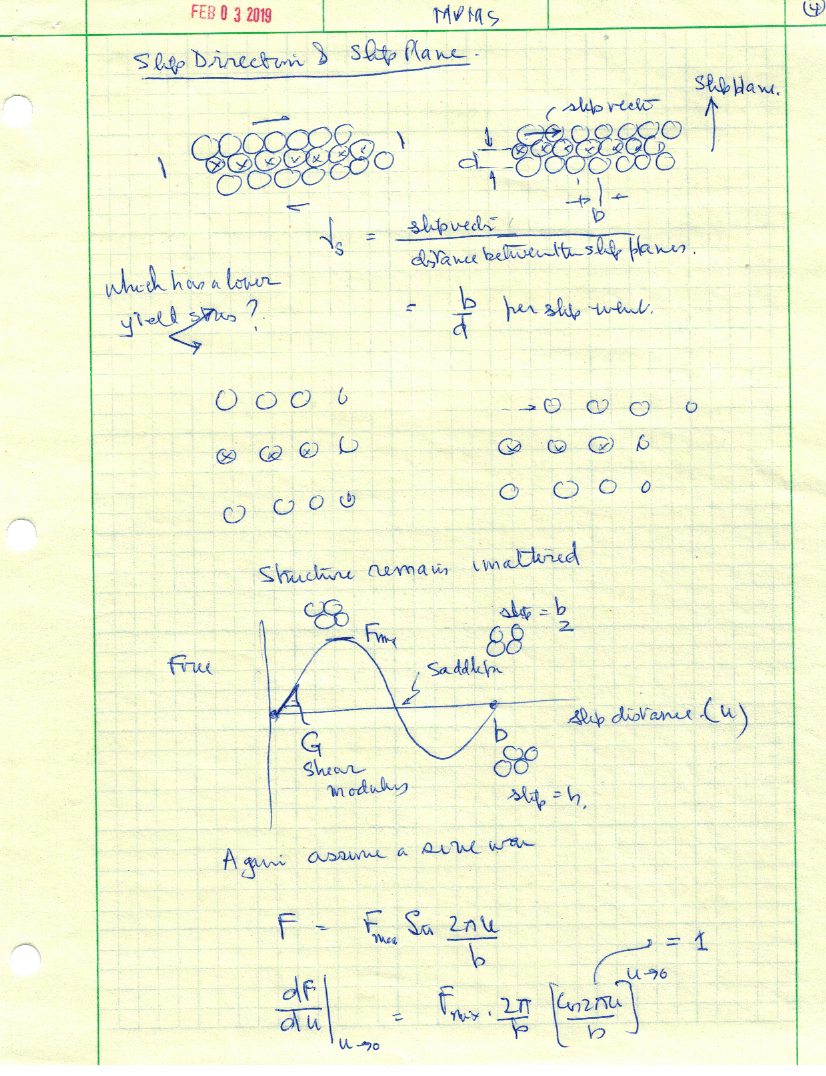 FEB 03 2019
MVMS
4
Slip Direction & Slip Plane.
slip vector
Slip plane.
d
b
γs = slip vector / distance between the slip planes.
which has a lower
yield stress?
= b/d per slip event.
Structure remains unaltered
slip = b/2
Fmax
Force
Saddle pt
slip distance (u)
b
G
Shear
modulus
slip = b.
Again assume a sine wave
F = Fmax Sin 2πu/b
= 1
u→0
dF/du |u→0 = Fmax . 2π/b [Cos 2πu/b]